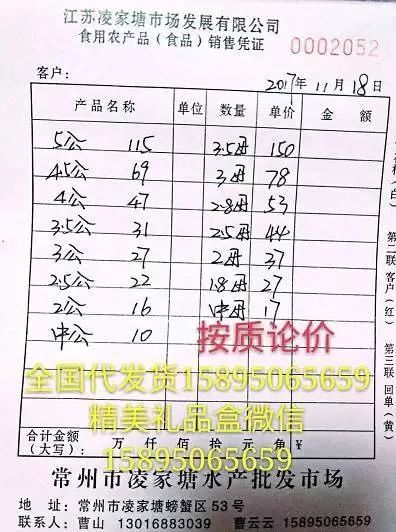 江苏凌家塘市场发展有限公司
食用农产品（食品）销售凭证
0002052
客户：
2017年11月18日
产品名称 单位 数量 单价 金额
5公 115 3.5母 150
4.5公 69 3母 78
4公 47 2.8母 53
3.5公 31 2.5母 44
3公 27 2母 37
2.5公 22 1.8母 27
2公 16 中母 17
中公 10
按质论价
全国代发货15895065659
精美礼品盒微信
15895065659
合计金额（大写）： 万 仟 佰 拾 元 角 ¥
（白）
第二联 客户（红）
第三联 回单（黄）
常州市凌家塘水产批发市场
地 址：常州市凌家塘螃蟹区53号
联系人：曹山 13016883039 曹云云 15895065659